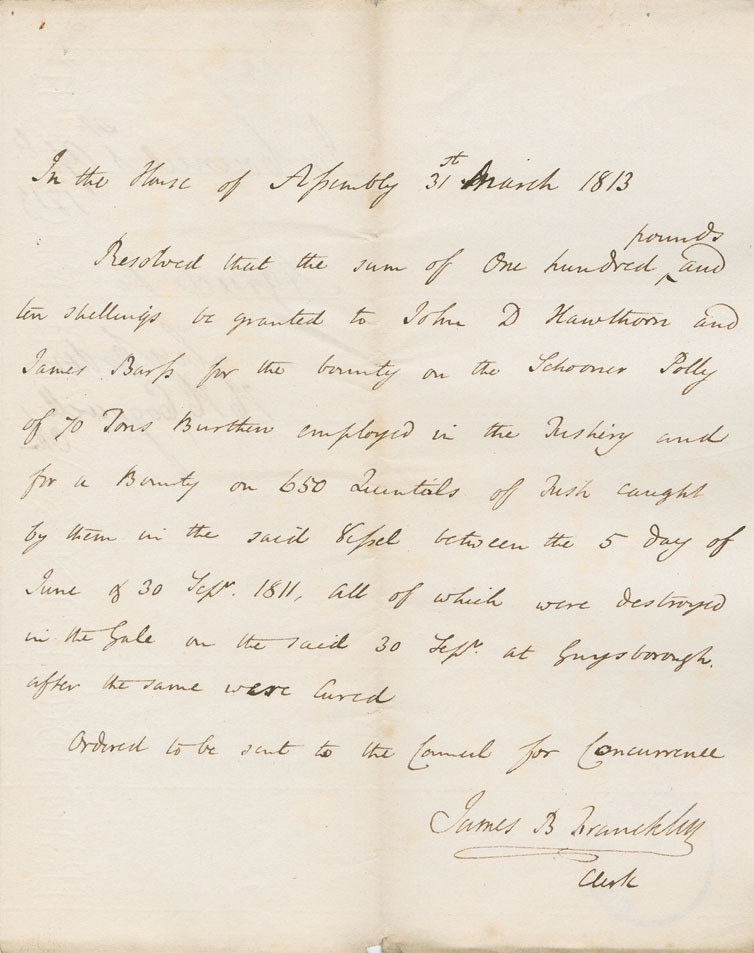 In the House of Assembly 31st March 1813
Resolved that the sum of One hundred pounds and
ten shellings be granted to John D Hawthorn and
James Barss for the bounty on the Schooner Polly
of 70 Tons Burthen employed in the Fishery and
for a Bounty on 650 Quintals of Fish caught
by them in the said Vessel between the 5 day of
June & 30 Sepr. 1811, all of which were destroyed
in the Gale on the said 30 Sepr. at Guysborough.
after the same were Cured
Ordered to be sent to the Council for Concurrence
James B Francklin
Clerk